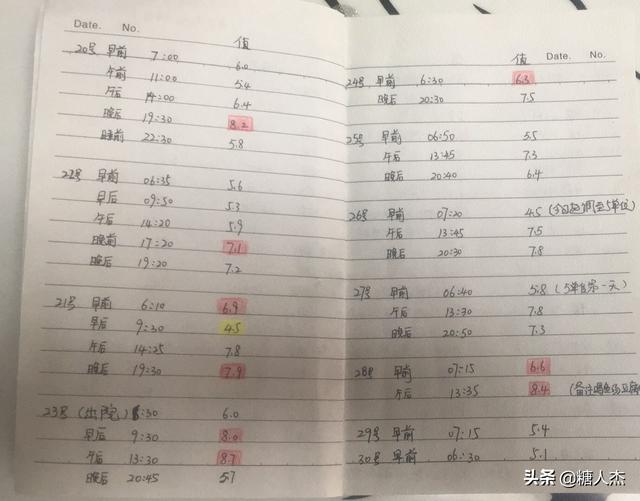 Date. No.
值
20号 早前 7:00 6.0
午前 11:00 5.4
午后 14:00 6.4
晚后 19:30 8.2
睡前 22:30 5.8
22号 早前 06:35 5.6
早后 09:50 5.3
午后 14:20 5.9
晚前 17:20 7.1
晚后 19:20 7.2
21号 早前 6:10 6.9
早后 9:30 4.5
午后 14:25 7.8
晚后 19:30 7.9
23号 (出院) 6:30 6.0
早后 9:30 8.0
午后 13:30 8.7
晚后 20:45 5.7
值 Date. No.
24号 早前 6:30 6.3
晚后 20:30 7.5
25号 早前 06:50 5.5
午后 13:45 7.3
晚后 20:40 6.4
26号 早前 07:20 4.5 (今日起调至5单位)
午后 13:45 7.5
晚后 20:30 7.8
27号 早前 06:40 5.8 (5单位第一天)
午后 13:30 7.8
晚后 20:50 7.3
28号 早前 07:15 6.6
午后 13:35 8.4 (备注喝鱼汤豆腐
29号 早前 07:15 5.4
30号 早前 06:30 5.1
头条 @糖人杰